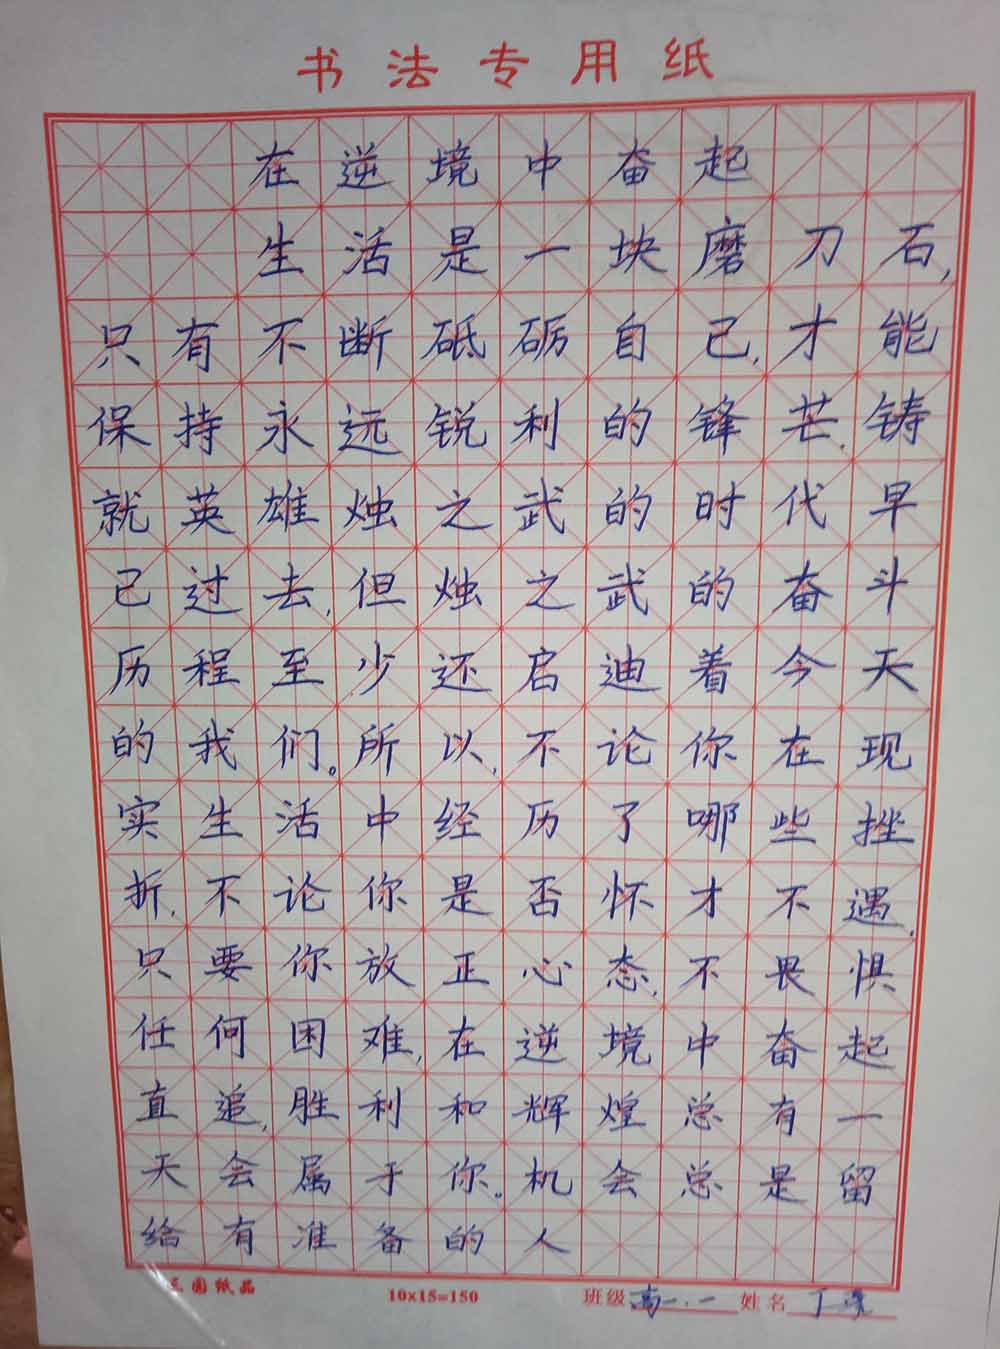 书法专用纸
在逆境中奋起
生活是一块磨刀石,
只有不断砥砺自己,才能
保持永远锐利的锋芒,铸
就英雄烛之武的时代早
已过去,但烛之武的奋斗
历程至少还启迪着今天
的我们。所以,不论你在现
实生活中经历了哪些挫
折,不论你是否怀才不遇,
只要你放正心态,不畏惧
任何困难,在逆境中奋起
直追,胜利和辉煌总有一
天会属于你。机会总是留
给有准备的人
圆纸品 10×15=150 班级 高一.一 姓名 丁